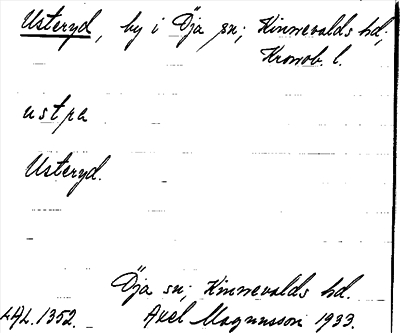 Usteryd, by i Öja sn; Kinnevalds hd;
Kronob. l.
ustra
Usteryd.
Öja sn; Kinnevalds hd.
LAL. 1352. Axel Magnusson 1933.